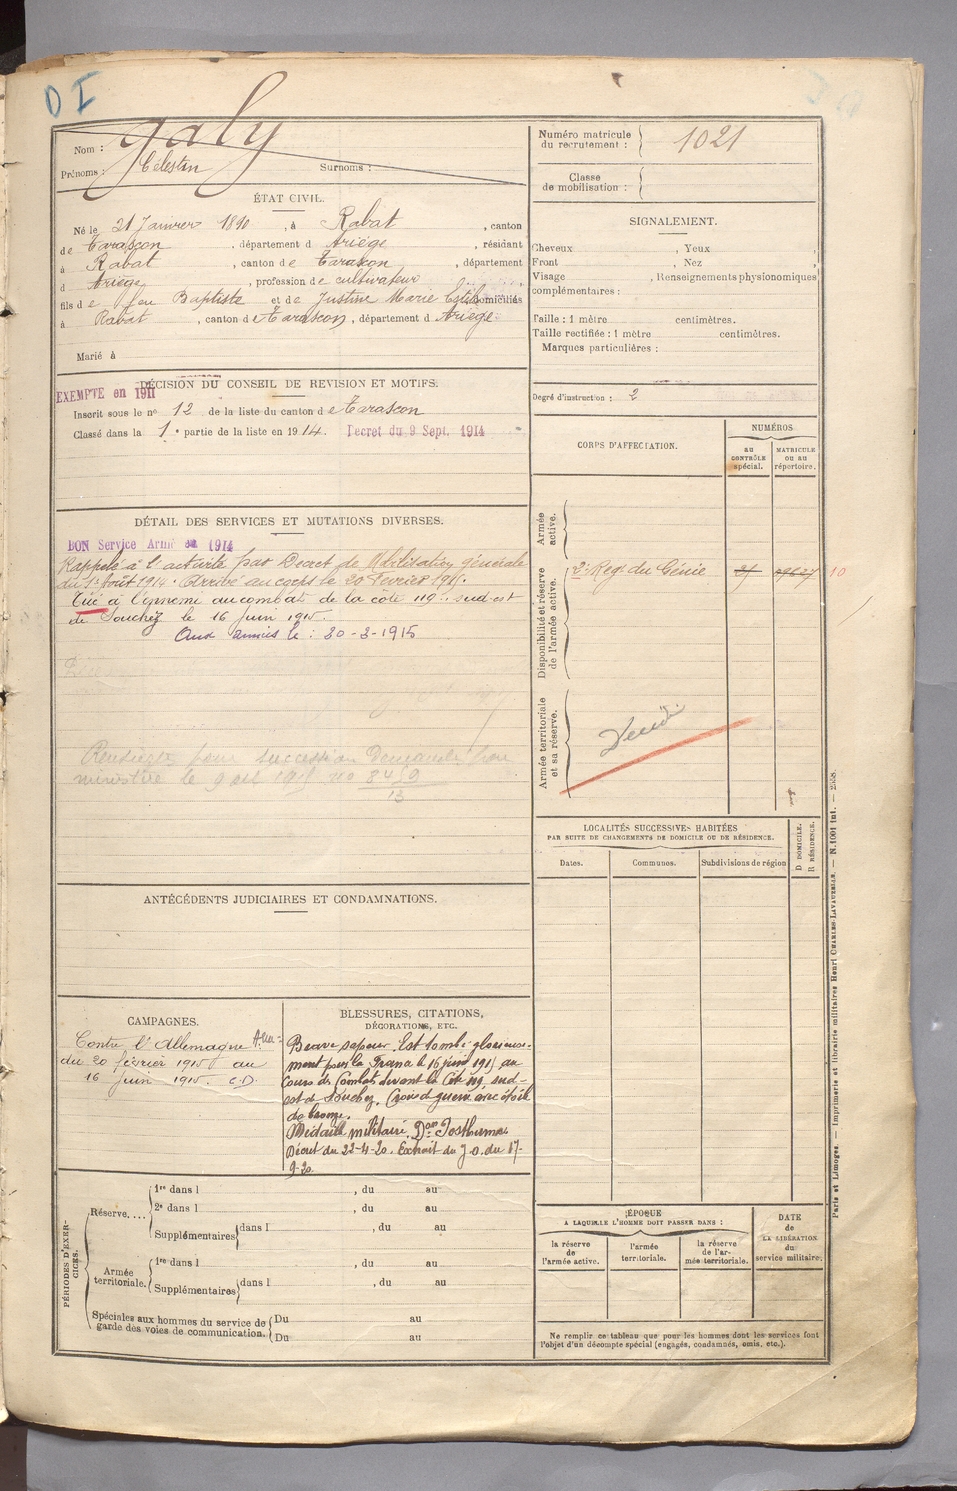 O I
Nom : Galy
Prénoms : Célestin Surnoms :
ÉTAT CIVIL.
Né le 21 Janvier 1890, à Rabat, canton
de Tarascon, département d Ariège, résidant
à Rabat, canton de Tarascon, département
d Ariège, profession de cultivateur
fils de feu Baptiste et de Justine Marie domiciliés
à Rabat, canton de Tarascon, département d Ariège.
Marié à
DÉCISION DU CONSEIL DE REVISION ET MOTIFS.
EXEMPTÉ en 1911
Inscrit sous le n° 12 de la liste du canton de Tarascon
Classé dans la 1e partie de la liste en 1914. Decret du 9 Sept. 1914
DÉTAIL DES SERVICES ET MUTATIONS DIVERSES.
BON Service Armé en 1914
Rappelé à l'activité par Décret de Mobilisation générale
du 1er Août 1914. Arrivé au corps le 20 février 1915.
Tué à l'ennemi au combat de la côte 119. sud-est
de Souchez le 16 juin 1915.
Aux armées le : 30-3-1915
pour succession
ministère le 9 1915 no 3459
13
ANTÉCÉDENTS JUDICIAIRES ET CONDAMNATIONS.
CAMPAGNES.
Contre l'Allemagne
du 20 février 1915 au
16 juin 1915. C.D.
BLESSURES, CITATIONS,
DÉCORATIONS, ETC.
Brave sapeur. Est tombé glorieuse-
ment pour la France le 16 juin 1915 au
cours des combats devant la Cote 119, sud-
est de Souchez. Croix de guerre avec étoile
de bronze.
Médaille militaire. Posthume
Décret du 22-4-20. Extrait du J.O. du 17-
9-20.
PÉRIODES D'EXERCICES.
Réserve....
1re dans l , du au
2e dans l , du au
Supplémentaires dans l , du au
Armée territoriale.
1re dans l , du au
Supplémentaires dans l , du au
Spéciales aux hommes du service de garde des voies de communication.
Du au
Du au
Numéro matricule du recrutement : 1021
Classe de mobilisation :
SIGNALEMENT.
Cheveux , Yeux ,
Front , Nez ,
Visage , Renseignements physionomiques
complémentaires :
Taille : 1 mètre centimètres.
Taille rectifiée : 1 mètre centimètres.
Marques particulières :
Degré d'instruction : 2
CORPS D'AFFECTATION.
NUMÉROS
au CONTRÔLE spécial.
MATRICULE ou au répertoire.
Armée active.
Disponibilité et réserve de l'armée active.
2e Régt du Génie 10
Armée territoriale et sa réserve.
LOCALITÉS SUCCESSIVES HABITÉES
PAR SUITE DE CHANGEMENTS DE DOMICILE OU DE RÉSIDENCE.
Dates. Communes. Subdivisions de région
D DOMICILE. R RÉSIDENCE.
ÉPOQUE
A LAQUELLE L'HOMME DOIT PASSER DANS :
la réserve de l'armée active.
l'armée territoriale.
la réserve de l'armée territoriale.
DATE de LA LIBÉRATION du service militaire.
Ne remplir ce tableau que pour les hommes dont les services font
l'objet d'un décompte spécial (engagés, condamnés, omis, etc.).
Paris et Limoges. — Imprimerie et librairie militaires Henri CHARLES-LAVAUZELLE. — N. 1001 int. — 2558.